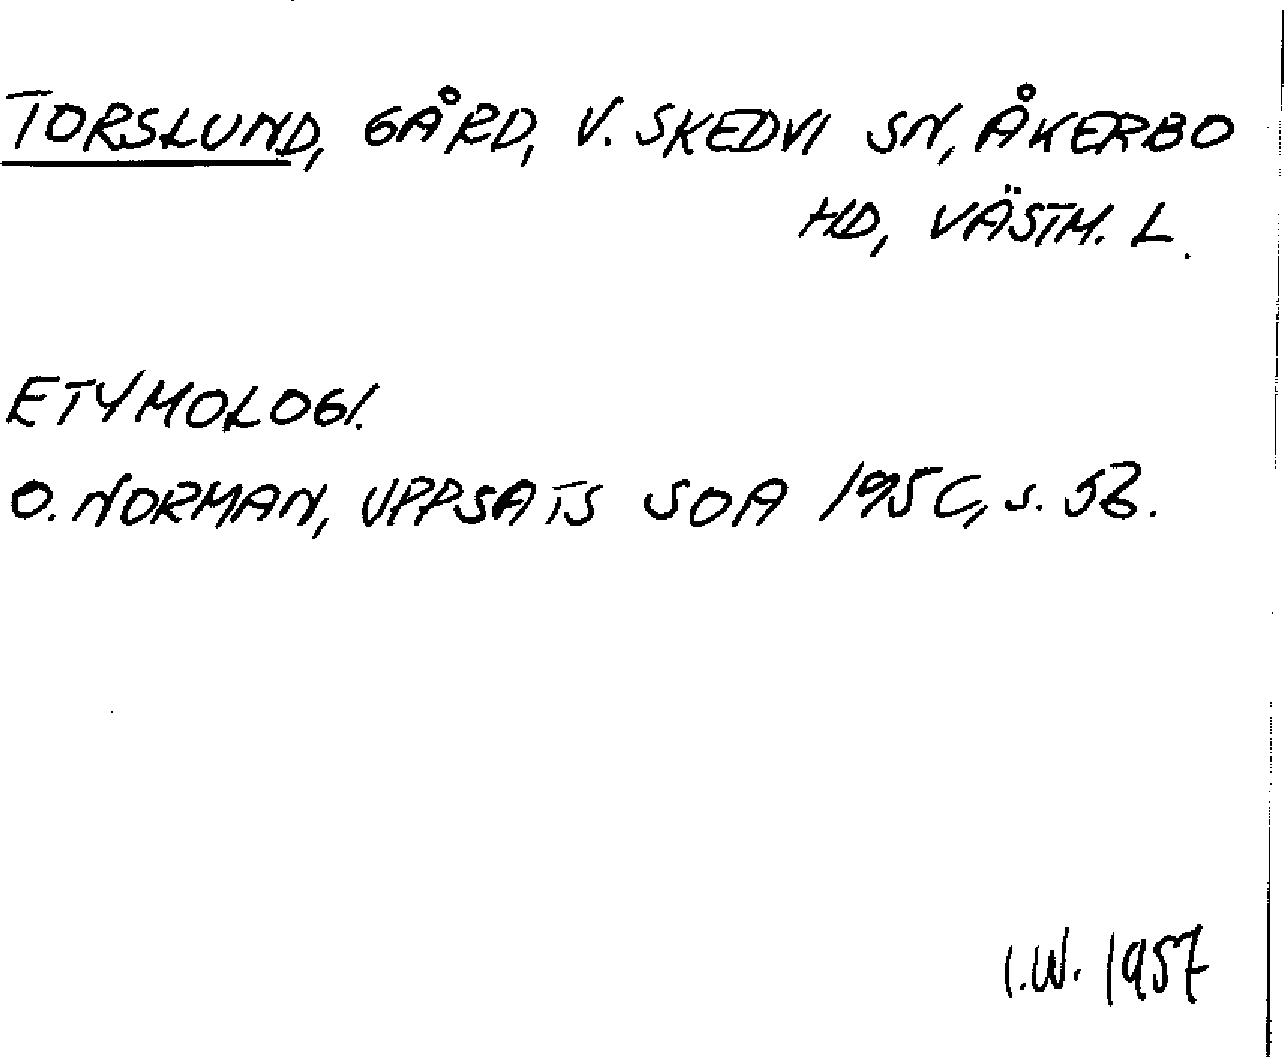 TORSLUND, GÅRD, V. SKEDVI SN, ÅKERBO
HD, VÄSTM. L.
ETYMOLOGI.
O. NORMAN, UPPSATS SOA 1956, s. 53.
I.W. 1957